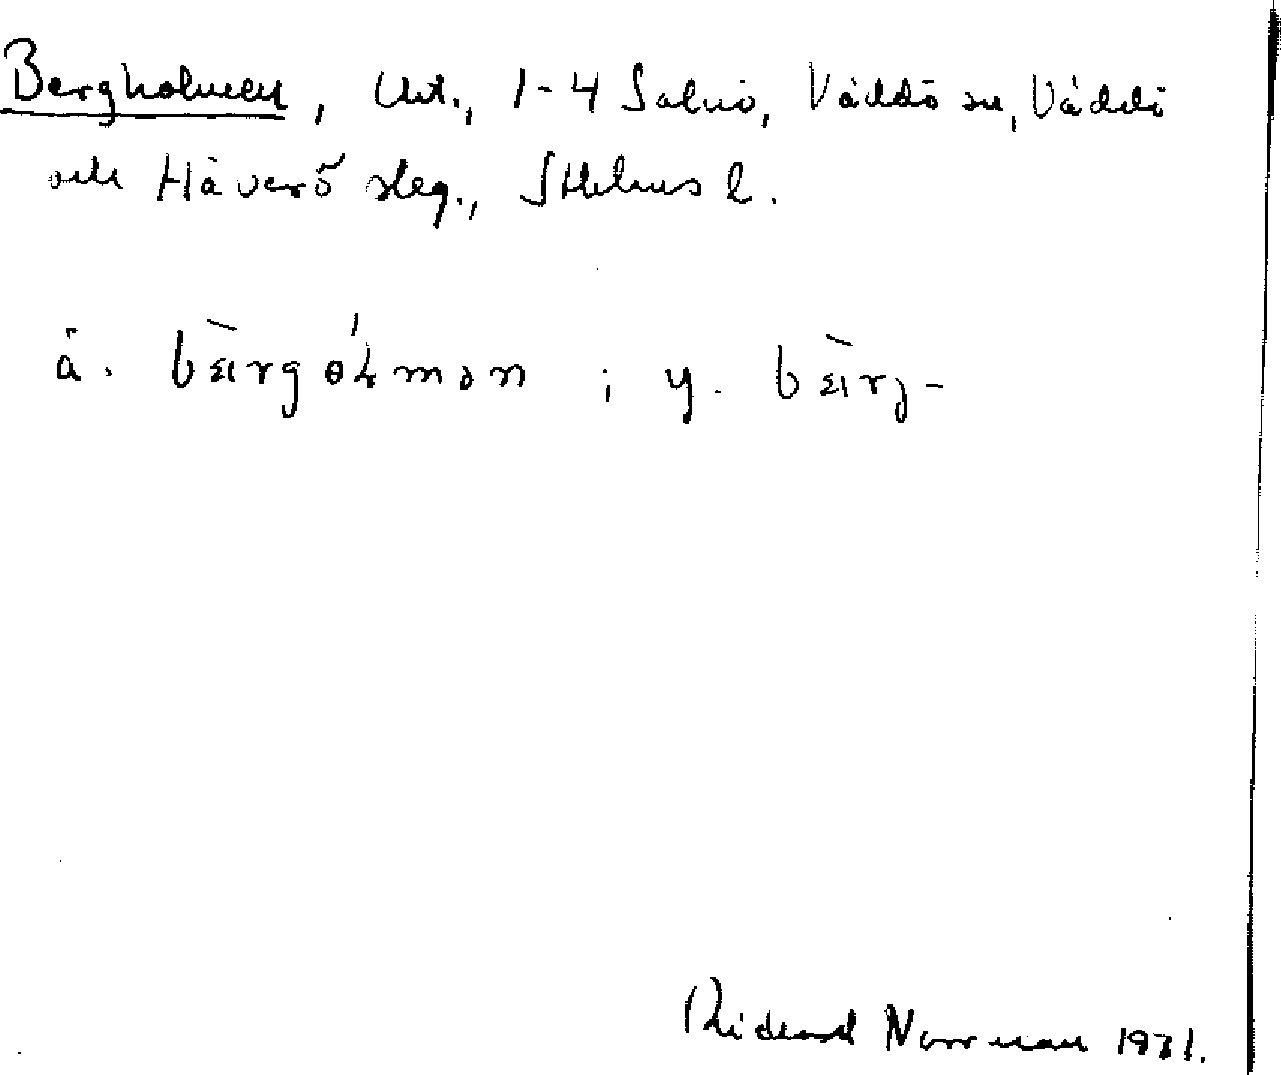 Bergholmen, Utt., 1-4 Salnö, Väddö sn, Väddö
och Häverö slag., Sthlms l.
ä. bèrgóɫmən ; y. bèrj-
Rickard Norrman 1931.